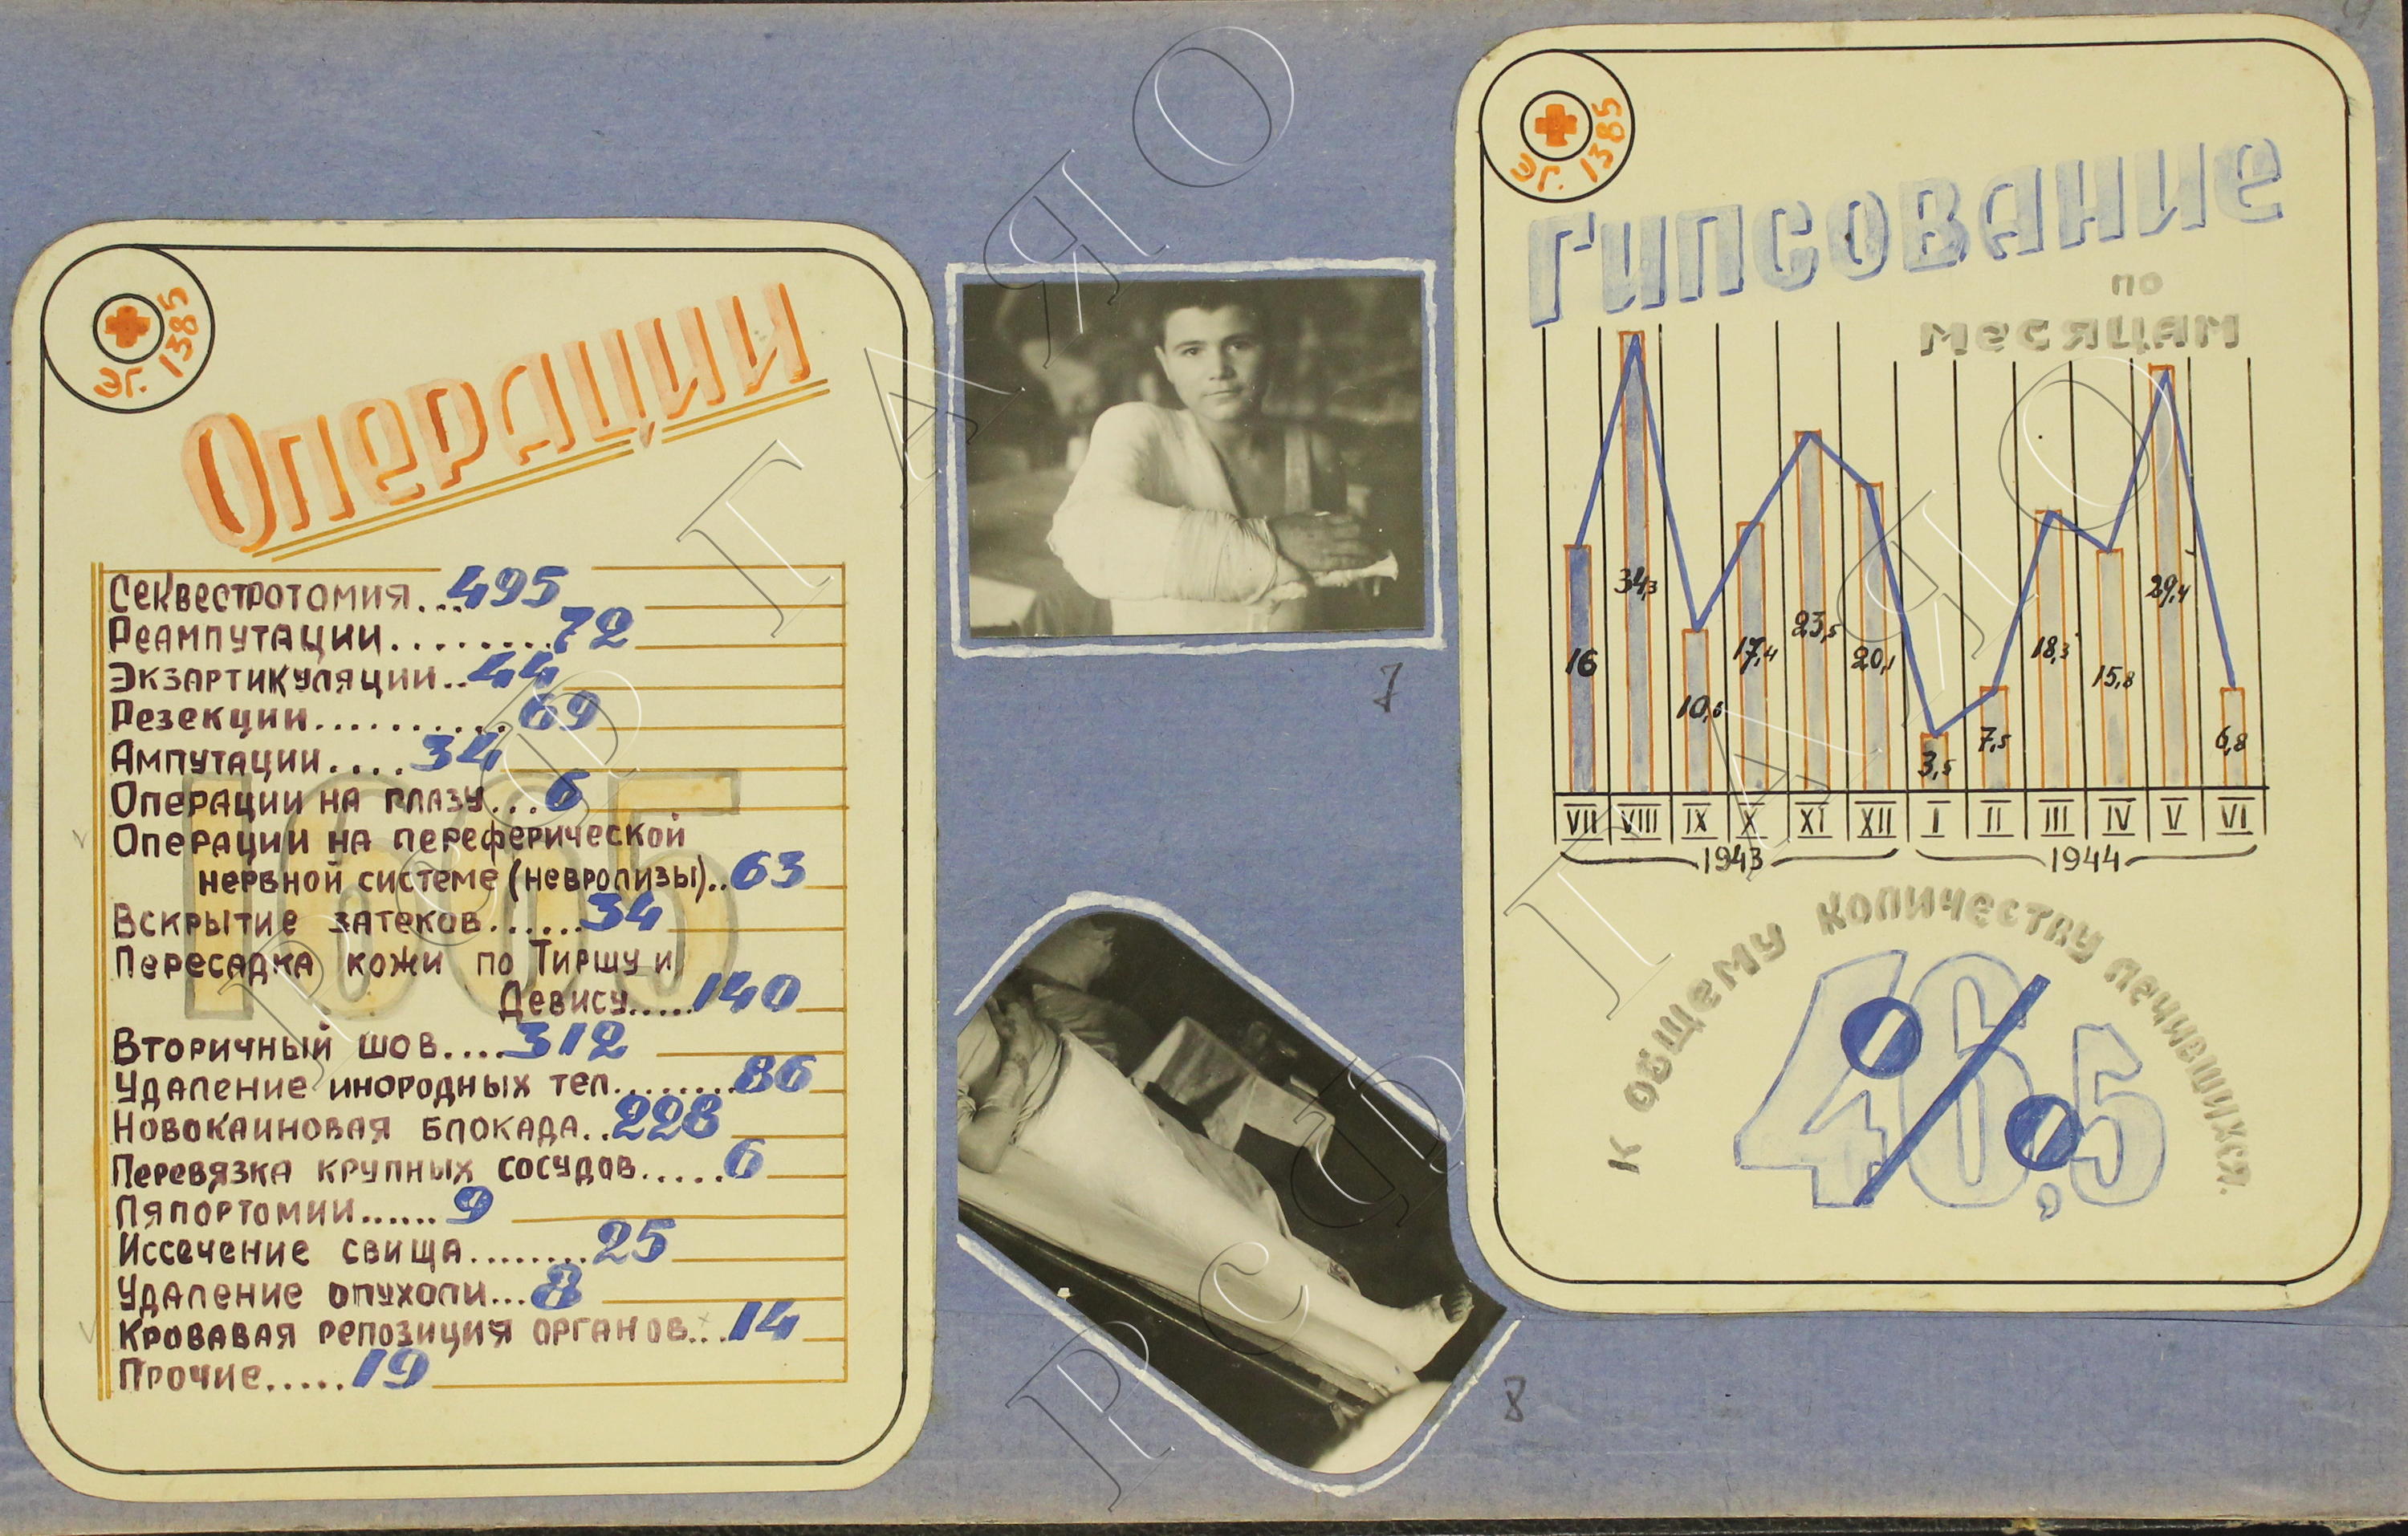 ЭГ. 1385
Операции
1665
Секвестротомия...495
Реампутации........72
Экзартикуляции..44
Резекции..........69
Ампутации....34
Операции на глазу...6
Операции на переферической
нервной системе (невролизы)..63
Вскрытие затеков......34
Пересадка кожи по Тиршу и
Девису.....140
Вторичный шов....312
Удаление инородных тел........86
Новокаиновая блокада..228
Перевязка крупных сосудов.....6
Ляпортомии......9
Иссечение свища........25
Удаление опухоли...8
Кровавая репозиция органов...14
Прочие.....19
7
8
ЭГ. 1385
Гипсование
по
месяцам
16 34,3 10,6 17,4 23,5 20,1 3,5 7,5 18,3 15,8 29,4 6,8
VII VIII IX X XI XII I II III IV V VI
1943 1944
к общему количеству лечившихся.
46,5 %
РСФР ГАЯО
РСФР ГАЯО